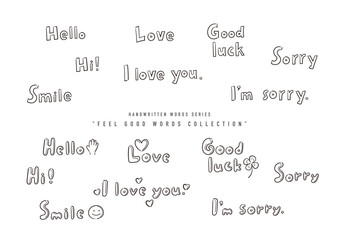 Hello
Love
Good
luck
Sorry
Hi!
I love you.
Smile
I'm sorry.
HANDWRITTEN WORDS SERIES
"FEEL GOOD WORDS COLLECTION"
Hello
Love
Good
luck
Sorry
Hi!
I love you.
Smile
I'm sorry.